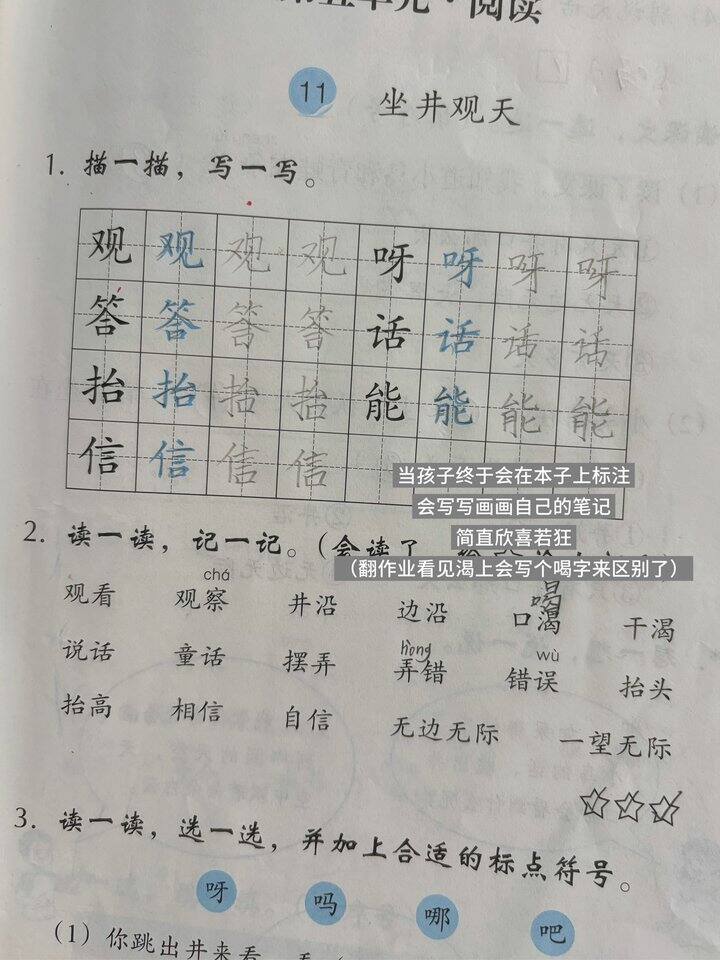 单元·阅读
11 坐井观天
1. 描一描，写一写。
观 观 观 观 呀 呀 呀 呀
答 答 答 答 话 话 话 话
抬 抬 抬 抬 能 能 能 能
信 信 信 信
当孩子终于会在本子上标注
会写写画画自己的笔记
简直欣喜若狂
（翻作业看见渴上会写个喝字来区别了）
2. 读一读，记一记。（会读了
chá 喝
观看 观察 井沿 边沿 口渴 干渴
hòng wù
说话 童话 摆弄 弄错 错误 抬头
抬高 相信 自信 无边无际 一望无际
3. 读一读，选一选，并加上合适的标点符号。
呀 吗 哪 吧
（1）你跳出井来看一看